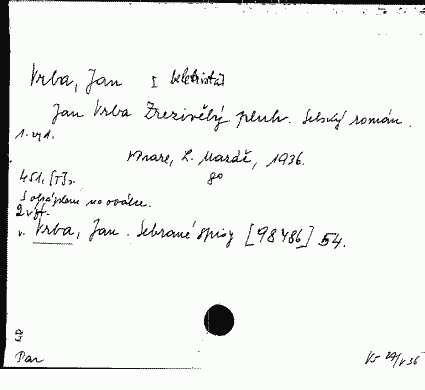 Vrba, Jan I beletrista]
Jan Vrba Zrezivělý pluh. Selský román.
1. vyd.
Praze, L. Mazáč, 1936.
451, [I] s. 80
S obrázkem na obálce.
2 výt.
v. Vrba, Jan. Sebrané spisy [98486] 54.
Par
Kr 27/V 36